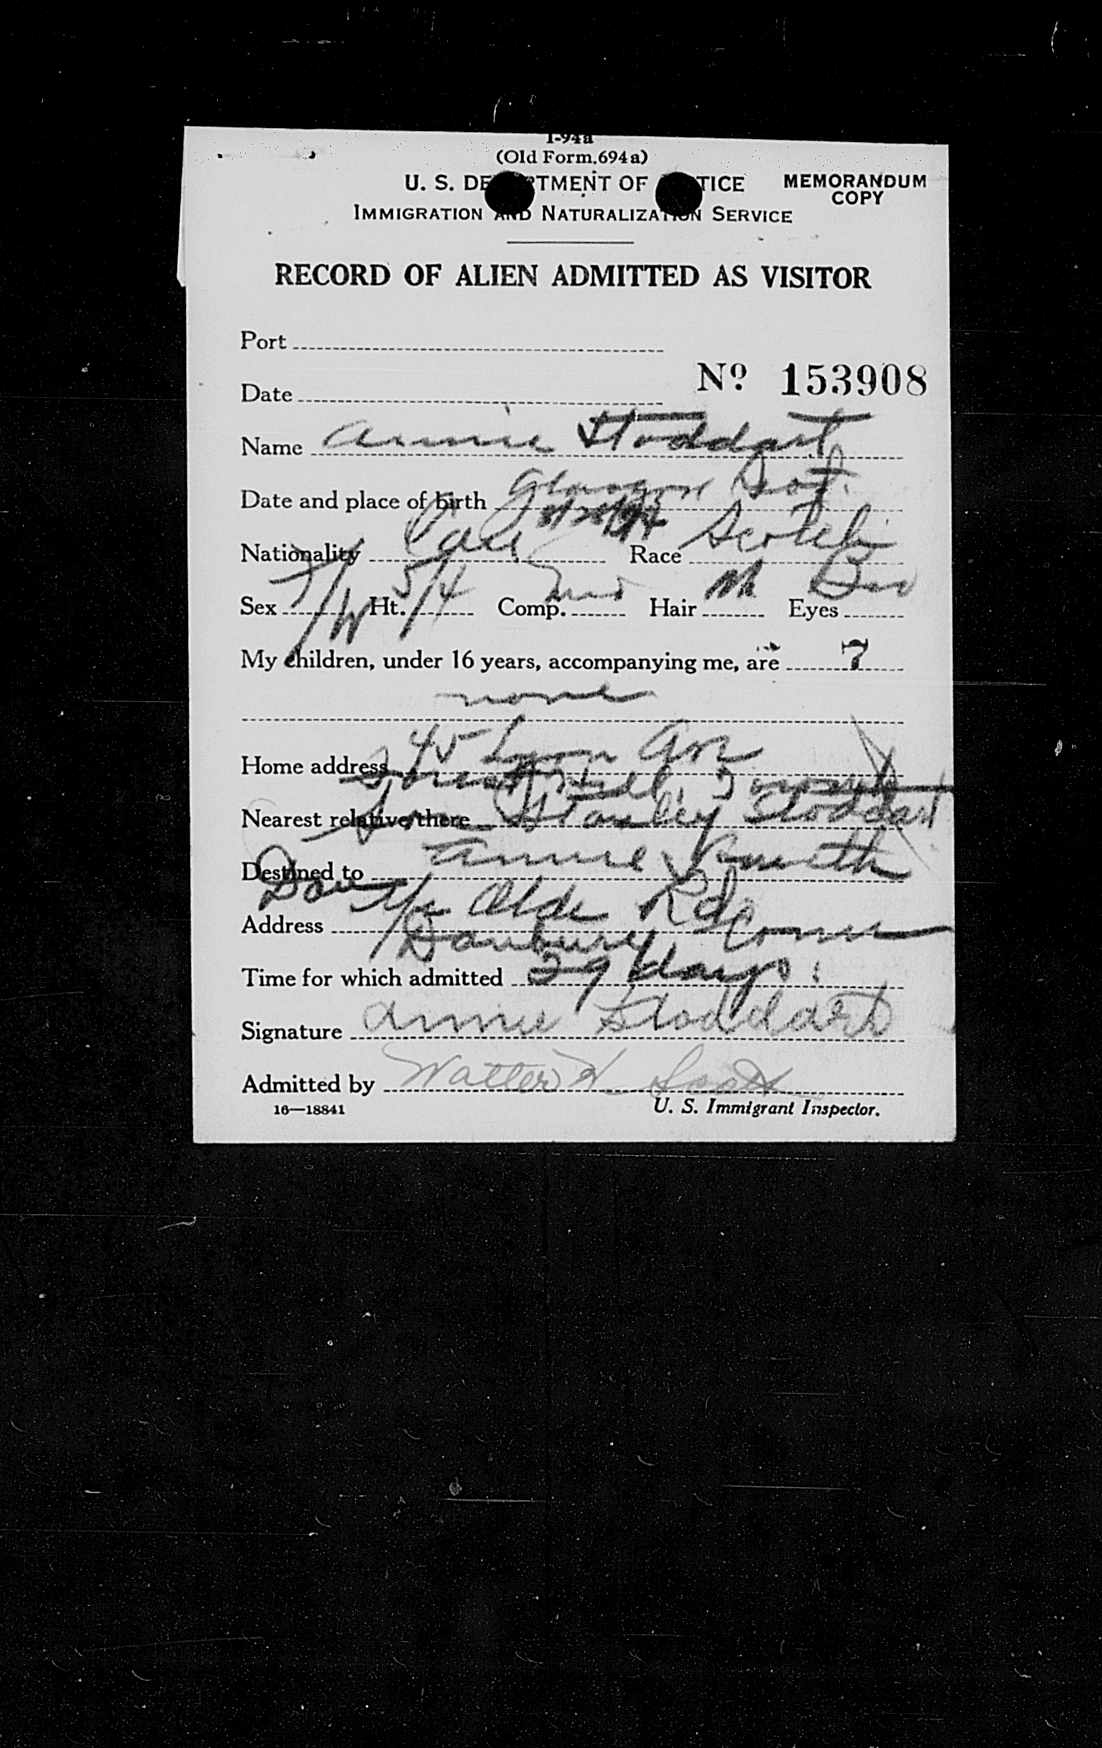 I-94a
(Old Form 694a)
U. S. DEPARTMENT OF JUSTICE
MEMORANDUM COPY
IMMIGRATION AND NATURALIZATION SERVICE
RECORD OF ALIEN ADMITTED AS VISITOR
Port
Date
No 153908
Name Annie Stoddart
Date and place of birth Glasgow Scot.
Nationality Can Race Scotch
Sex F/W Ht. 5/4 Comp. Med Hair Eyes Bro
My children, under 16 years, accompanying me, are 7
none
Home address 45 Lyon Ave
Forest Hill, Toronto
Nearest relative there Son Stanley Stoddart
Destined to Annie Smith
Address Olde Rd
Danbury Conn
Time for which admitted 29 days
Signature Annie Stoddart
Admitted by Walter W. Scott
16—18841 U. S. Immigrant Inspector.